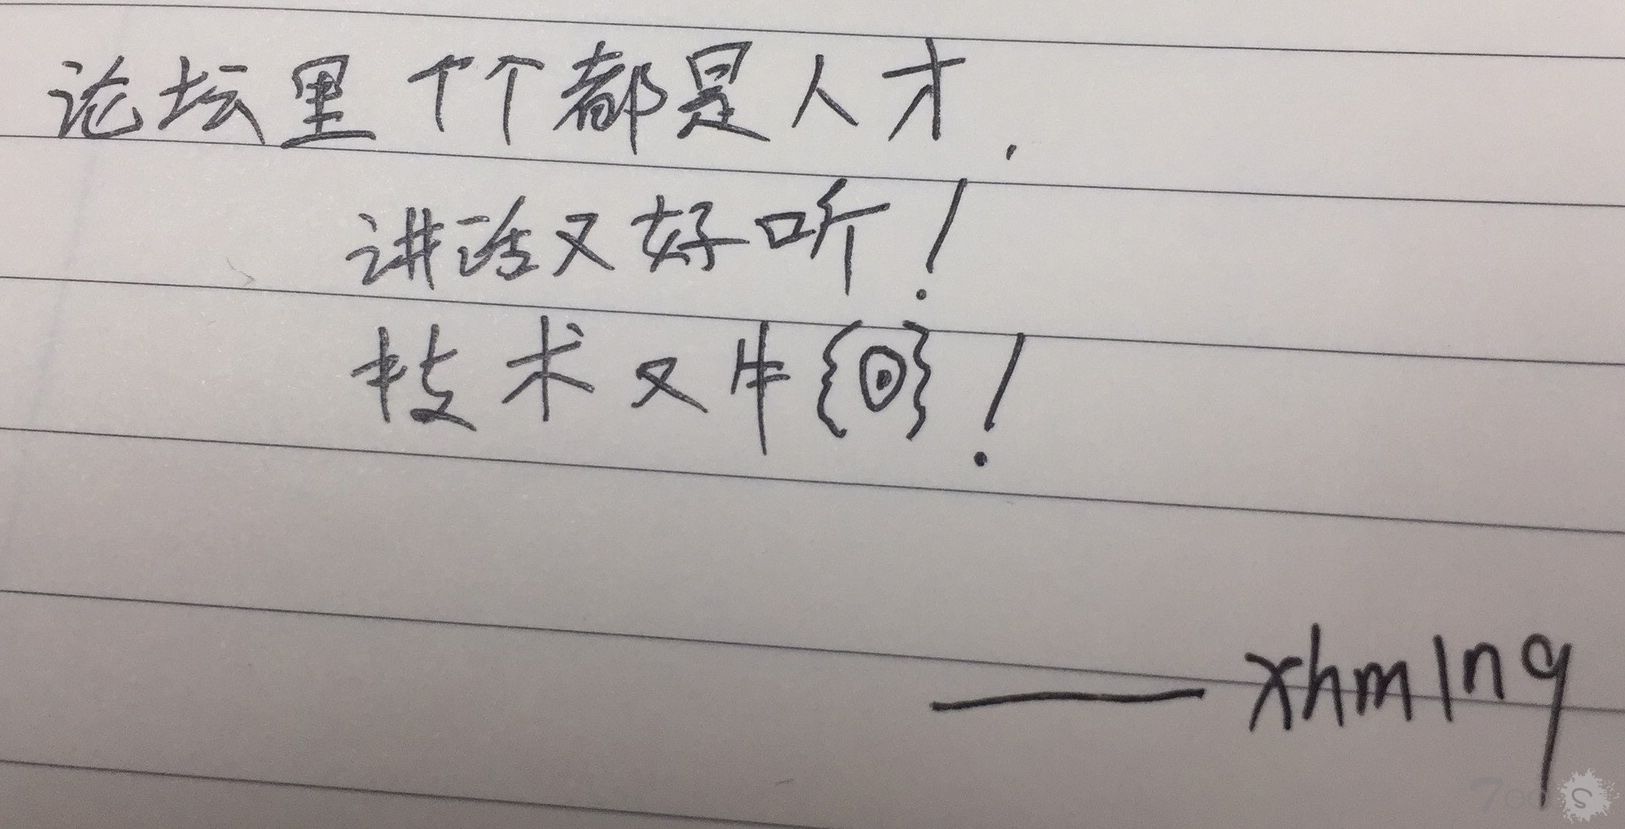 论坛里个个都是人才,
讲话又好听!
技术又牛{⊙}!
——xhm1n9